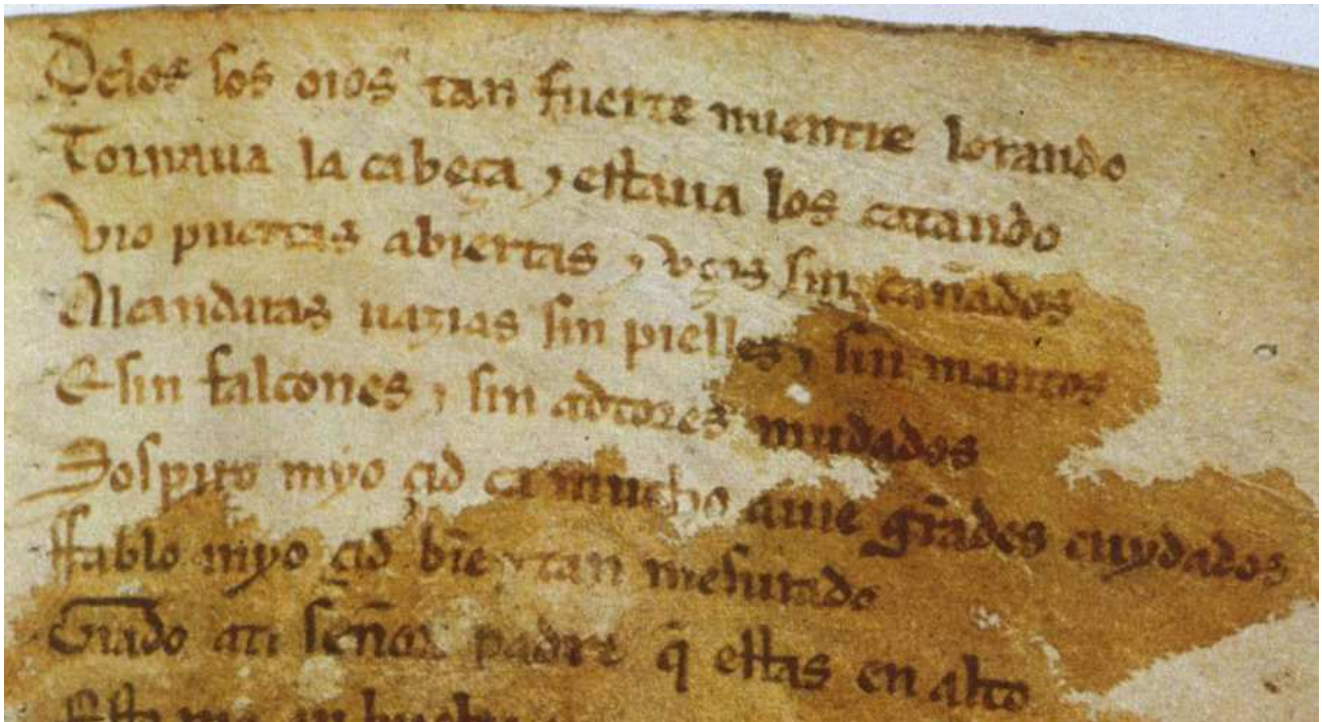 Delos sos oios tan fuerte mientre lorando
Tornaua la cabeça ⁊ estaua los catando
Vio puertas abiertas ⁊ vços sin cañados
Alcandaras uazias sin pielles ⁊ sin mantos
E sin falcones ⁊ sin adtores mudados
Sospiro myo çid ca mucho auie grãdes cuydados
Ffablo myo çid bie͂ ⁊ tan mesurado
Grado ati señor padre q̃ estas en alto